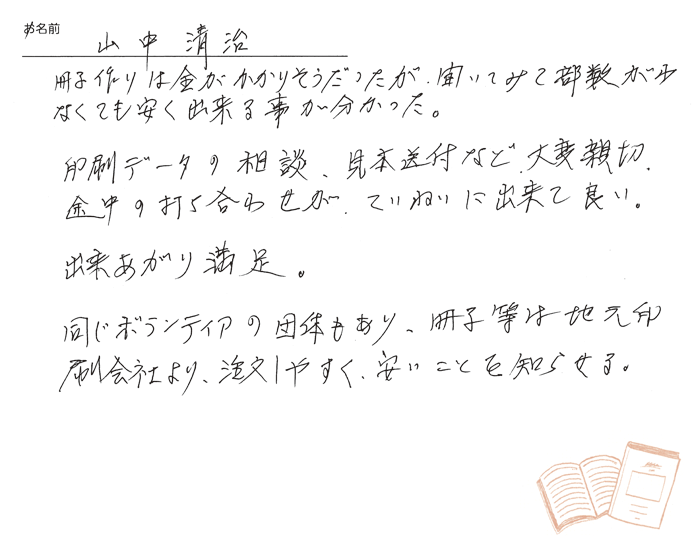 お名前
山中清治
冊子作りは金がかかりそうだったが、聞いてみて部数が少
なくても安く出来る事が分かった。
印刷データの相談、見本送付など、大変親切、
途中の打ち合わせが、ていねいに出来て良い。
出来あがり満足。
同じボランティアの団体もあり、冊子等は地元印
刷会社より、注文しやすく、安いことを知らせる。